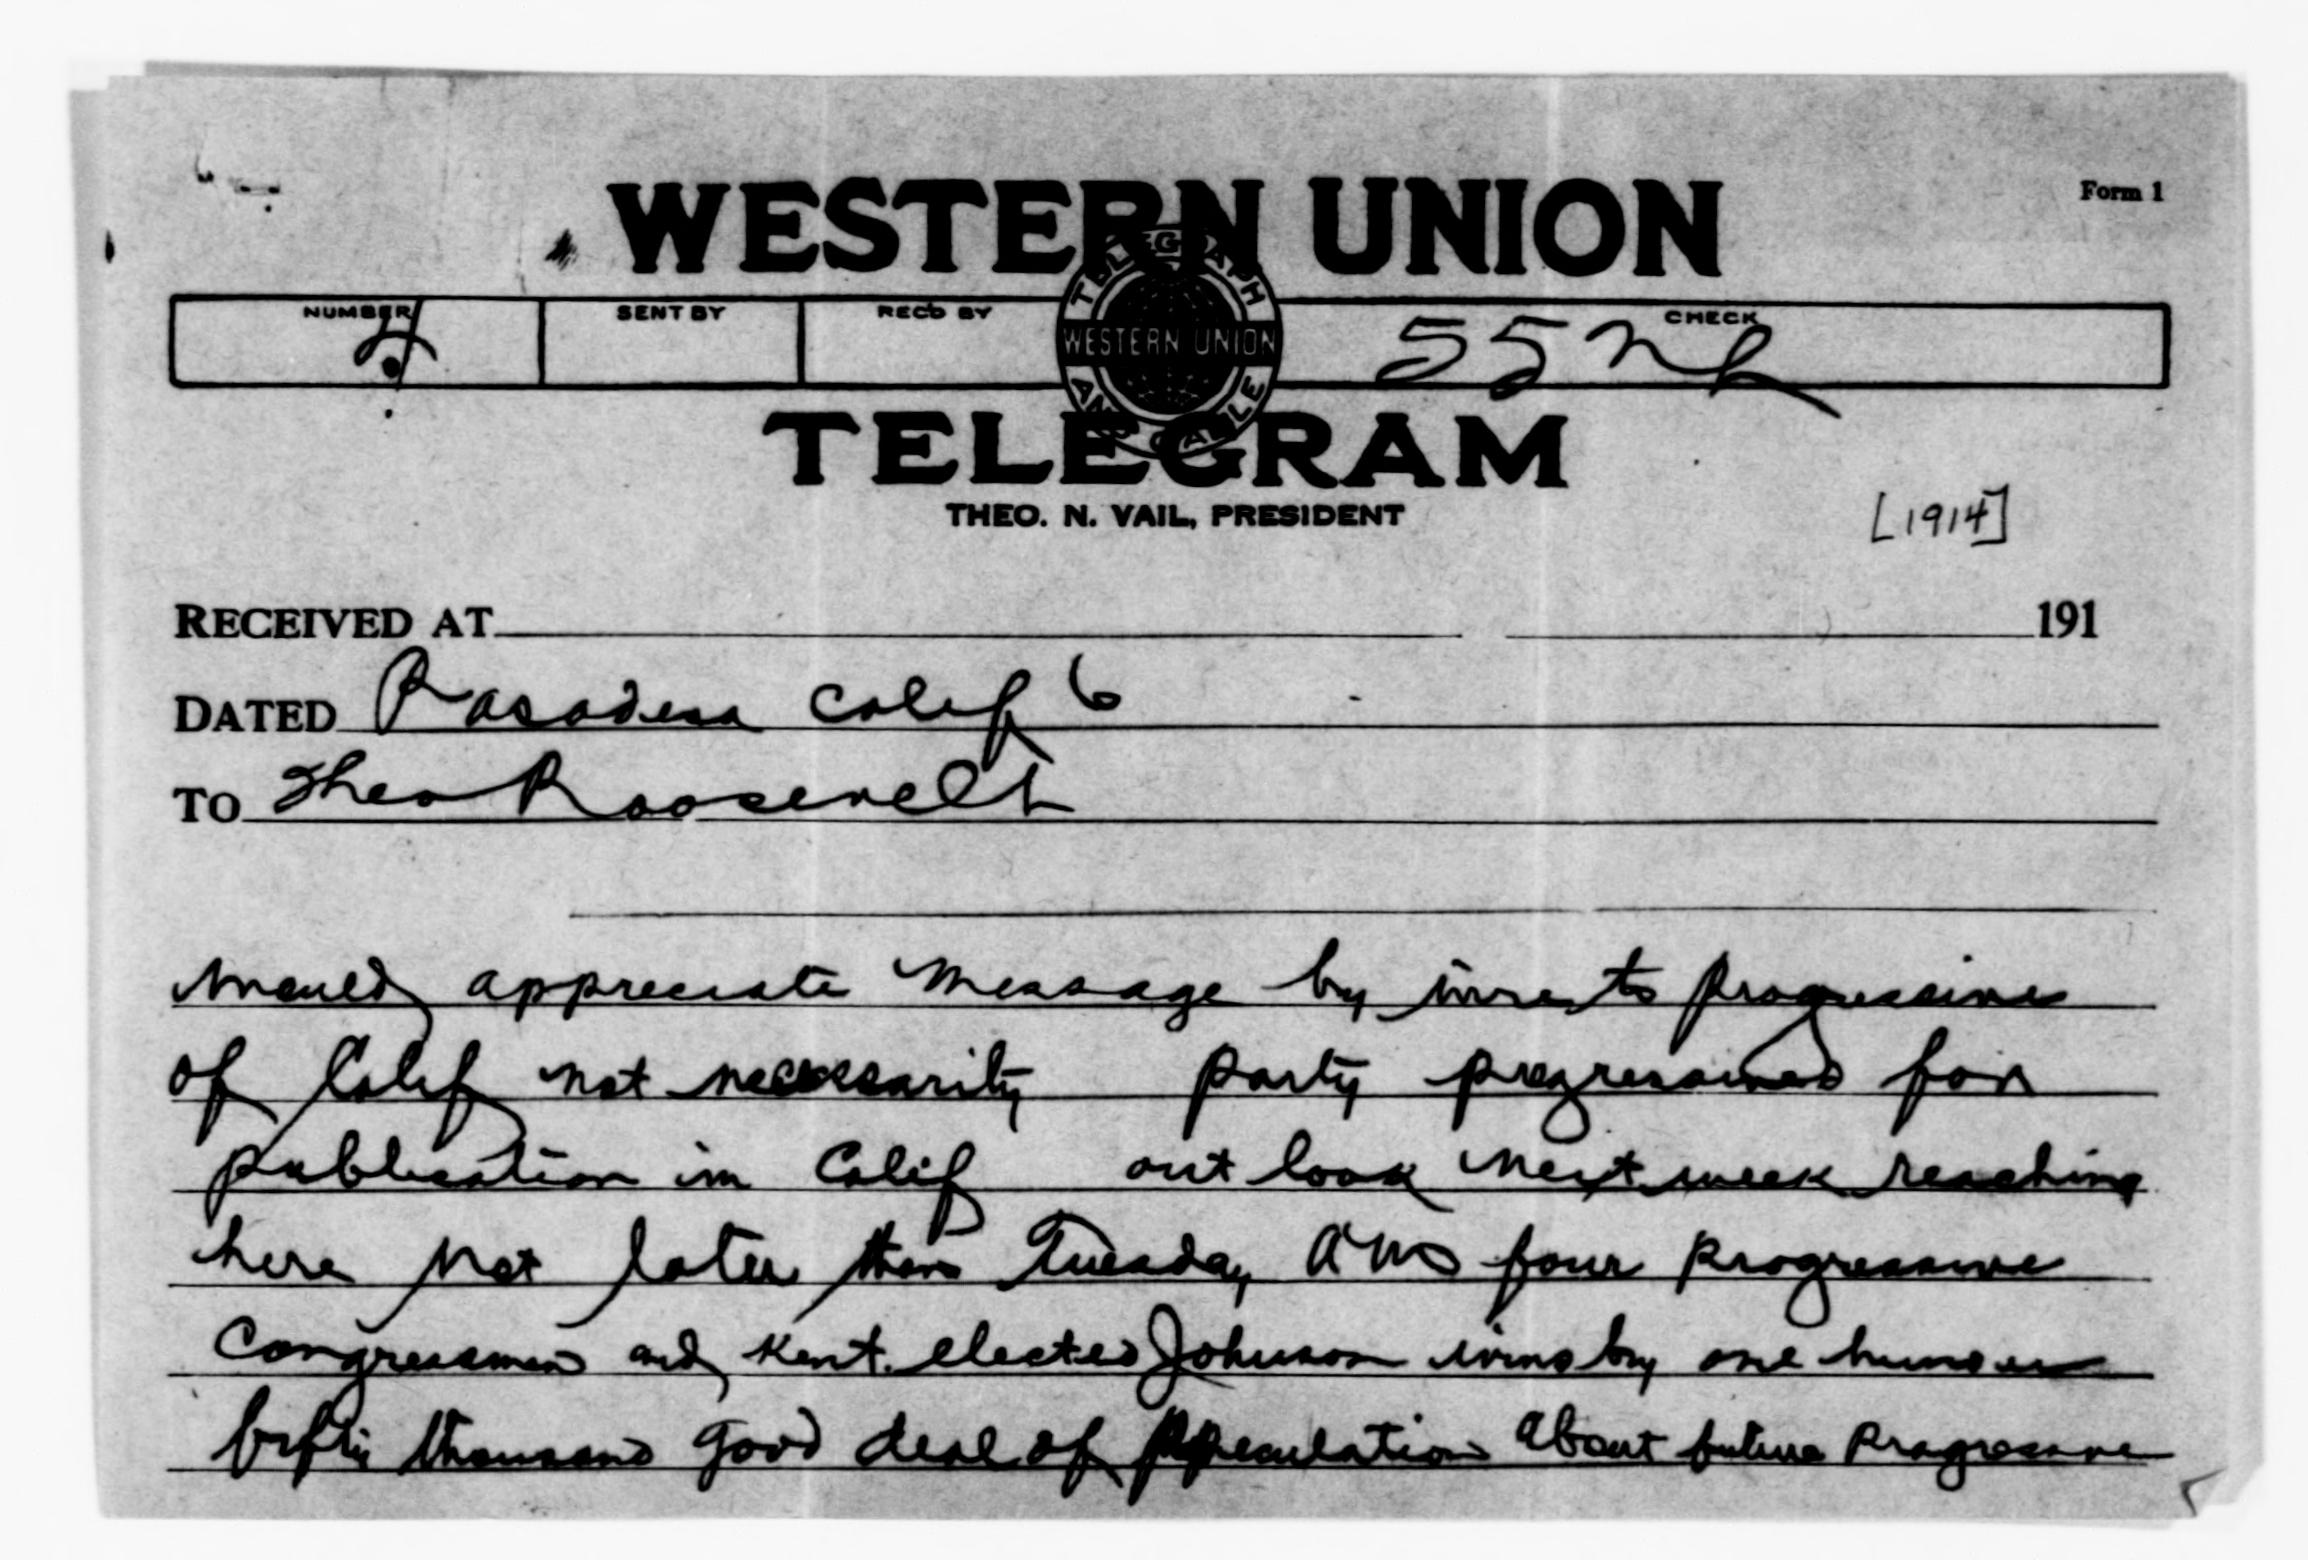 WESTERN UNION
Form 1
NUMBER
SENT BY
REC'D BY
CHECK
4
55 NL
TELEGRAPH
WESTERN UNION
AND CABLE
TELEGRAM
THEO. N. VAIL, PRESIDENT
[1914]
RECEIVED AT 191
DATED Pasadena Calif 6
TO Theo Roosevelt
Would appreciate message by wire to progressives
of Calif not necessarily party progressives for
publication in Calif out look next week reaching
here not later than Tuesday AM four progressive
Congressmen and Kent elected Johnson wins by one hundred
fifty thousand good deal of speculation about future Progressive